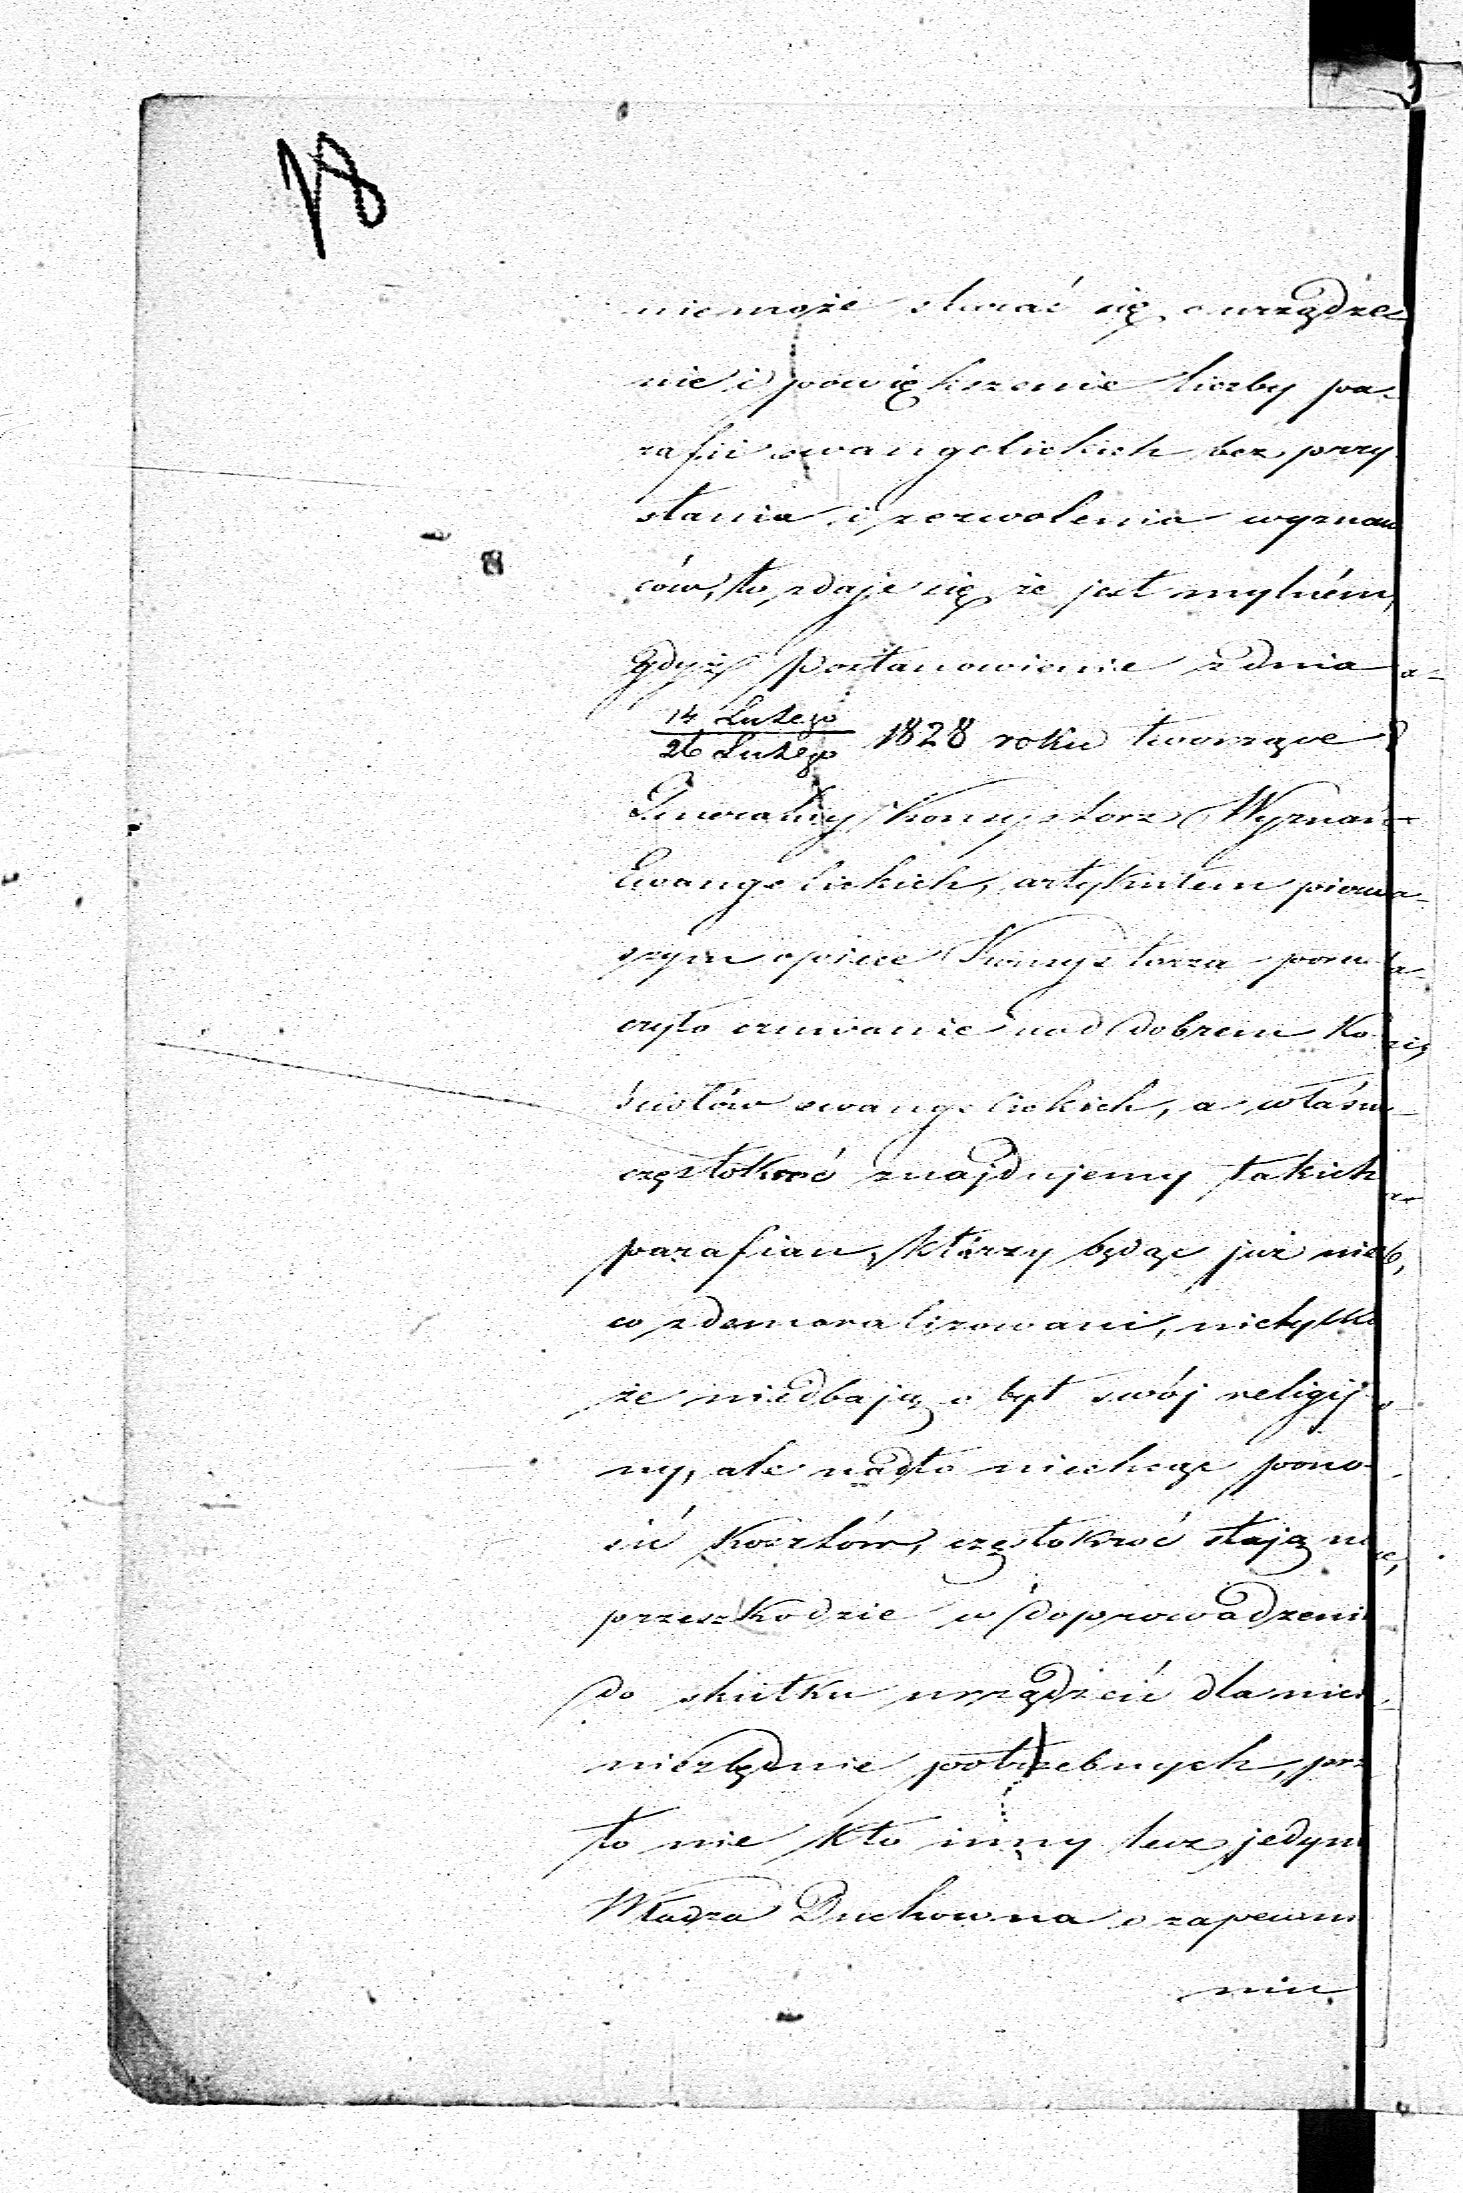 18
niemoże starać się o urządze-
nie i powiększenie liczby pa-
rafii ewangelickich bez przy
stania i zezwolenia wyznaw
ców, to zdaje się że jest mylném,
gdyż Postanowienie z dnia
14 Lutego
26 Lutego 1828 roku tworzące
Generalny Konsystorz Wyznań
Ewangelickich, artykułem pierw
szym opiece Konsystorza poru
czyło czuwanie nad dobrem Ko
ściołów ewangelickich, a
częstokroć znajdujemy takich
parafian, którzy będąc już nie
co zdemoralizowani, nietylko
że niedbają o byt swój religij
ny, ale nadto niechcąc pono
sić kosztów, częstokroć stają na
przeszkodzie w doprowadzeni
do skutku urządzeń dla nich
niezbędnie potrzebnych,
to nie kto inny lecz jedyni
Władza Duchowna o zapewni
niu